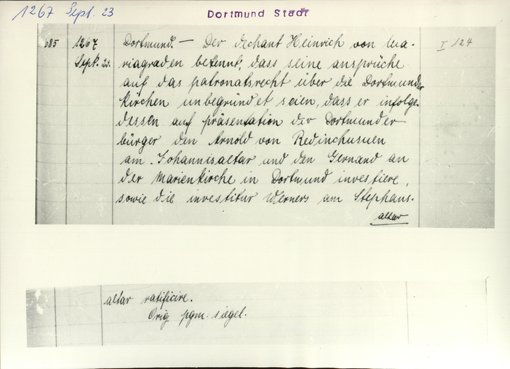 1267 Sept. 23
Dortmund Stadt
1267
Sept. 23.
Dortmund. — Der dechant Heinrich von Ma-
riagraden bekennt, dass seine ansprüche
auf das patronatsrecht über die Dortmunder
kirchen unbegründet seien, dass er infolge-
dessen auf präsentation der Dortmunder
bürger den Arnold von Redinchusen
am Johannisaltar und den Gernand an
der Marienkirche in Dortmund investiere,
sowie die investitur Werners am Stephans-
altar
I 124
altar ratificire.
Orig. pgm. siegel.